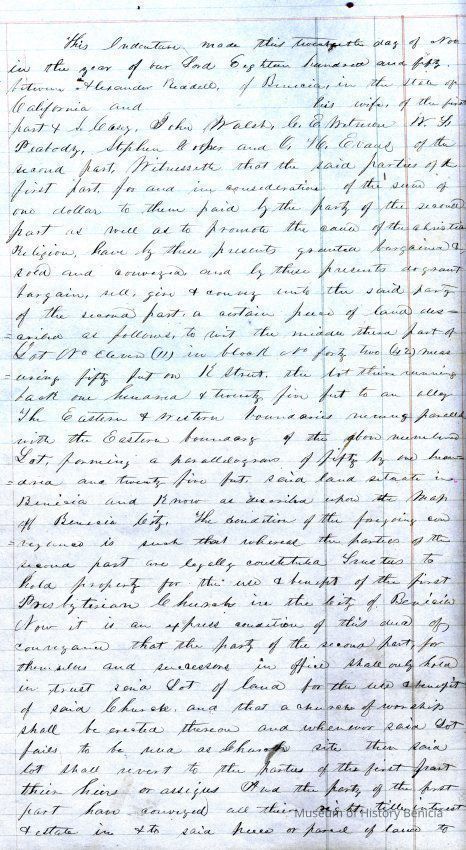 This Indenture made this twentyeth day of Nov
in the year of our Lord Eighteen hundred and fifty
between Alexander Riddell, of Benicia, in the State of
California and his wife, of the first
part & John Walsh, C. E. Wetmore W. H.
Peabody, Stephen Cooper and C. H. Evans of the
second part, Witnesseth that the said parties of the
first part, for and in consideration of the sum of
one dollar to them paid by the party of the second
part as well as to promote the cause of the Christian
Religion, have by these presents granted bargained &
sold and conveyed and by these presents do grant
bargain, sell, give & convey unto the said party
of the second part, a certain piece of land des=
=cribed as follows, to wit the middle third part of
Lot No eleven (11) in block No forty two (42) meas
=uring fifty feet on K Street, the lot then running
back one hundred & twenty five feet to an alley
The Eastern & Western boundaries running parallel
with the Eastern boundary of the above numbered
Lot, forming a parallelogram of fifty by one hun=
=dred and twenty five feet, said land situate in
Benicia and Know as described upon the Map
of Benicia City. The condition of the foregoing con
=veyance is such that whereas the parties of the
second part are legally constituted Trustees to
hold property for the use & benefit of the first
Presbyterian Church in the City of Benicia
Now it is an express condition of this deed of
conveyance that the party of the second part, for
themselves and successors in office shall only hold
in trust said Lot of land for the use & benefit
of said Church and that a church of worship
shall be erected thereon and whenever said Lot
fails to be used as Church site then said
lot shall revert to the parties of the first part
their heirs or assigns And the party of the first
part have conveyed all their right title interest
& estate in & to said piece or parcel of land to
Museum of History Benicia